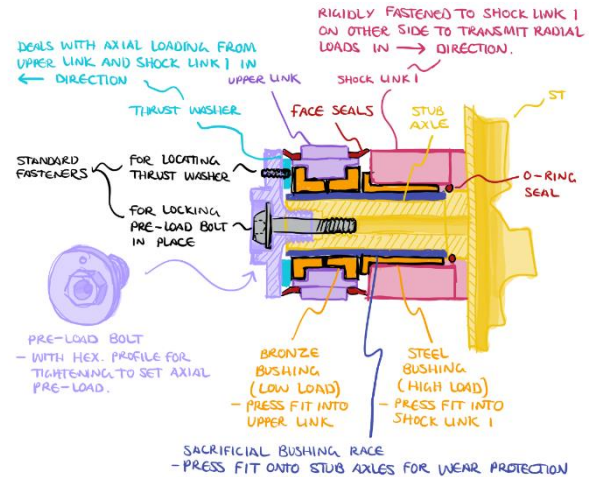 RIGIDLY FASTENED TO SHOCK LINK 1
ON OTHER SIDE TO TRANSMIT RADIAL
LOADS IN → DIRECTION.
DEALS WITH AXIAL LOADING FROM
UPPER LINK AND SHOCK LINK 1 IN
← DIRECTION
UPPER LINK
SHOCK LINK 1
THRUST WASHER
FACE SEALS
STUB
AXLE
ST
STANDARD
FASTENERS
FOR LOCATING
THRUST WASHER
O-RING
SEAL
FOR LOCKING
PRE-LOAD BOLT
IN PLACE
PRE-LOAD BOLT
- WITH HEX. PROFILE FOR
TIGHTENING TO SET AXIAL
PRE-LOAD.
BRONZE
BUSHING
(LOW LOAD)
- PRESS FIT INTO
UPPER LINK
STEEL
BUSHING
(HIGH LOAD)
- PRESS FIT INTO
SHOCK LINK 1
SACRIFICIAL BUSHING RACE
- PRESS FIT ONTO STUB AXLES FOR WEAR PROTECTION